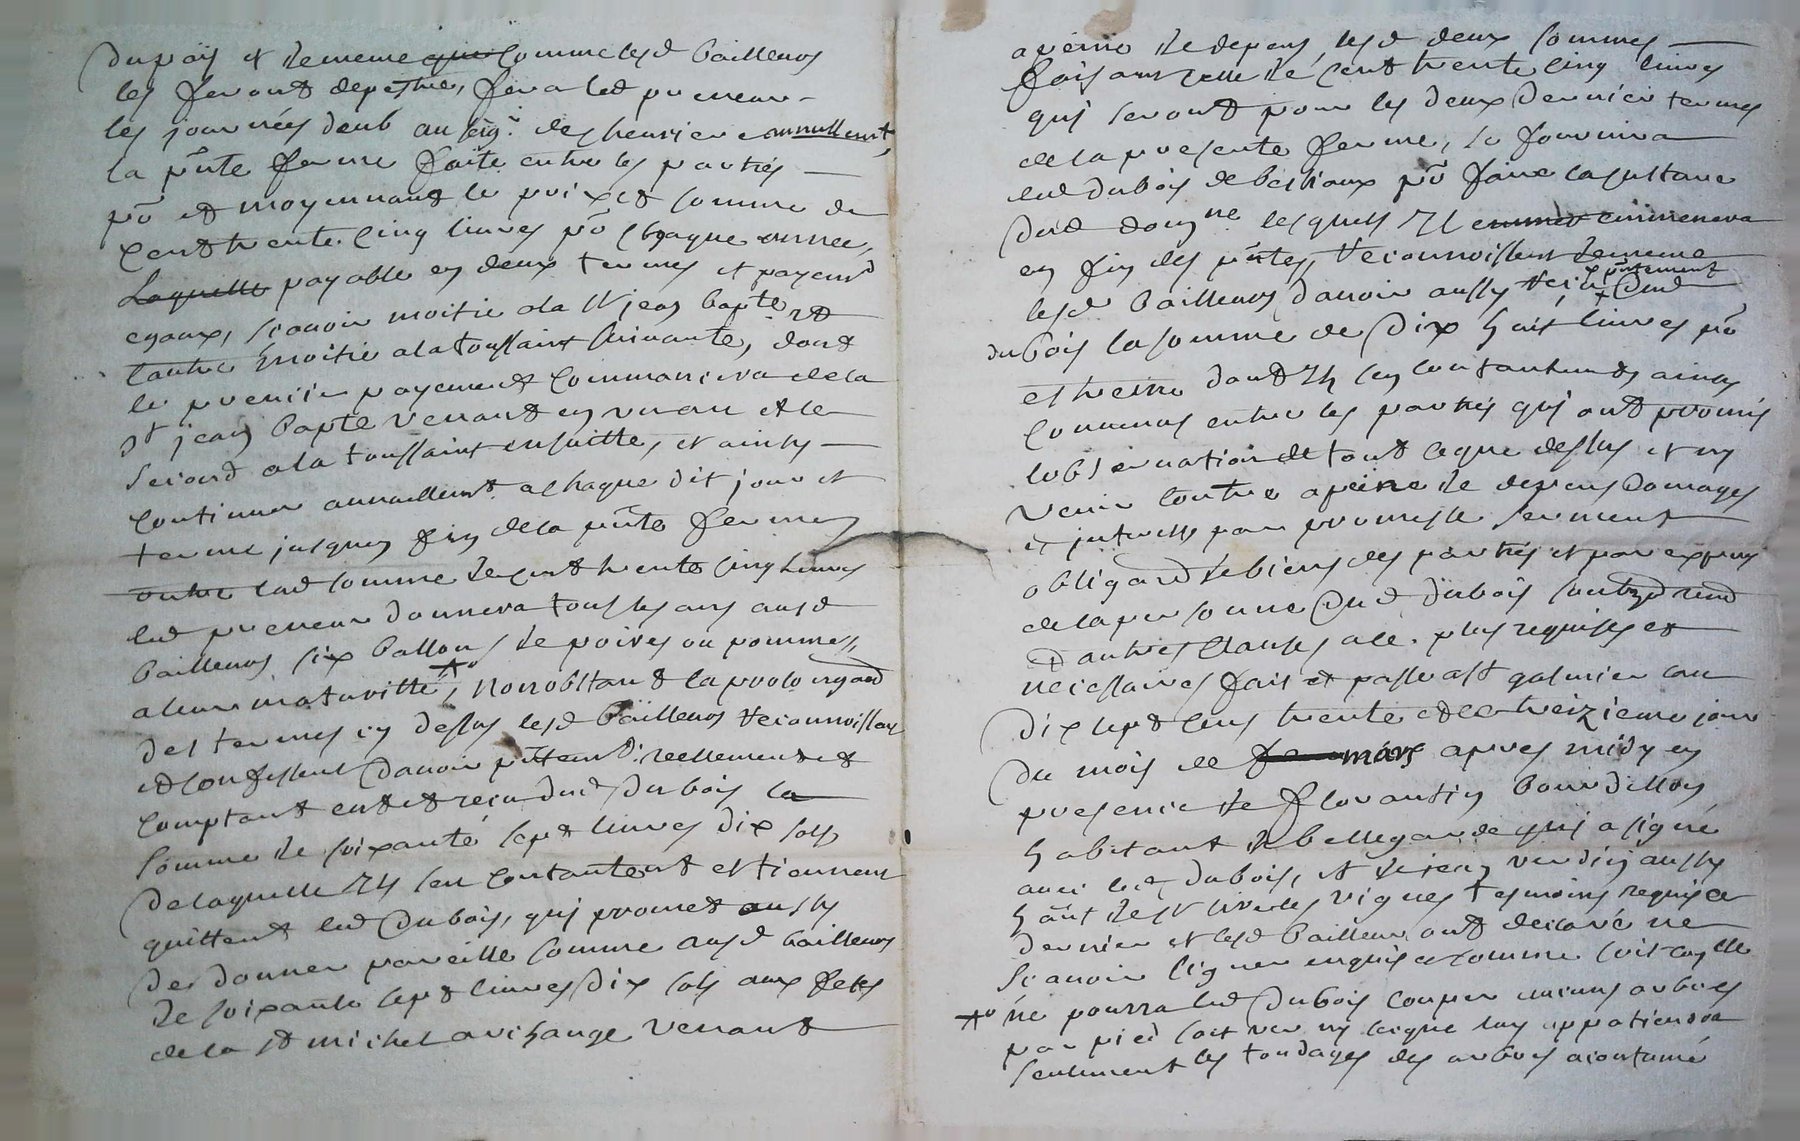 du païs et de meme que comme lesd bailleurs
les feront depestre, fera led preneur
les journées deub au seigr. de chenrier annuellemt,
la pñte ferme faite entre les parties
pō et moyennant le prix et somme de
cent trente cinq livres pō chaque année,
Laquelle payable en deux termes et payemt
egaux, sçavoir moitié a la St jean bapte et
l'autre moitié a la toussaint suivante, dont
le premier payement commancera de la
St jean bapte venant en un an et le
second a la toussaint ensuitte, et ainsy
continuer annuellemt a chaque dit jour et
terme jusques fin de la pñte ferme
outre lad somme de cent trente cinq livres
led preneur donnera tous les ans ausd
bailleurs six ballons de poires ou pommes,
a leur maturitté, nonobstant la prolongaōn
des termes cy dessus lesd bailleurs reconnoissent
et confessent d'avoir pñtemt. reellement et
comptant eut et reçu dud dubois la
somme de soixante sept livres dix sols
de laquelle Ils sen contantent et tiennent
quittent led dubois, qui promet aussy
de donner pareille somme ausd bailleurs
de soixante sept livres dix sols aux fetes
de la st michel archange venant
a peine de depens, lesd deux sommes
faisant celle de cent trente cinq livres
qui seront pour les deux derniers termes
de la presente ferme, se fournira
led dubois de bestiaux pō faire la culture
dud domne lesquels Il emmenera
en fin des pñtes, reconnoissent de meme
lesd bailleurs d'avoir aussy reçu pñtement dud
dubois la somme de dix huit livres pō
etreine dont Ils sen contantent ainsy
convenus entre les parties qui ont promis
l'observation de tout ce que dessus et ny
venir contre a peine de depens domages
et interests par promesse serment
obligaōn de biens des parties et par exprès
de la personne dud dubois
et autres clauses a ce. plus requises et
necessaires fait et passé a st galmier l'an
dix sept cens trente et le treizieme jour
du mois de mars apres midy en
presence de florantin bourdillon
habitant de bellegarde qui a signé
avec led dubois, et de jean verdier aussy
hañt de st les vignes temoins requis ce
dernier et lesd bailleurs ont declaré ne
sçavoir signer enquis et sommé soit controllé
ne pourra led dubois couper aucuns arbres
par pied soit ver ny secque luy appatiendra
seulement les tondages des arbres acoutumé